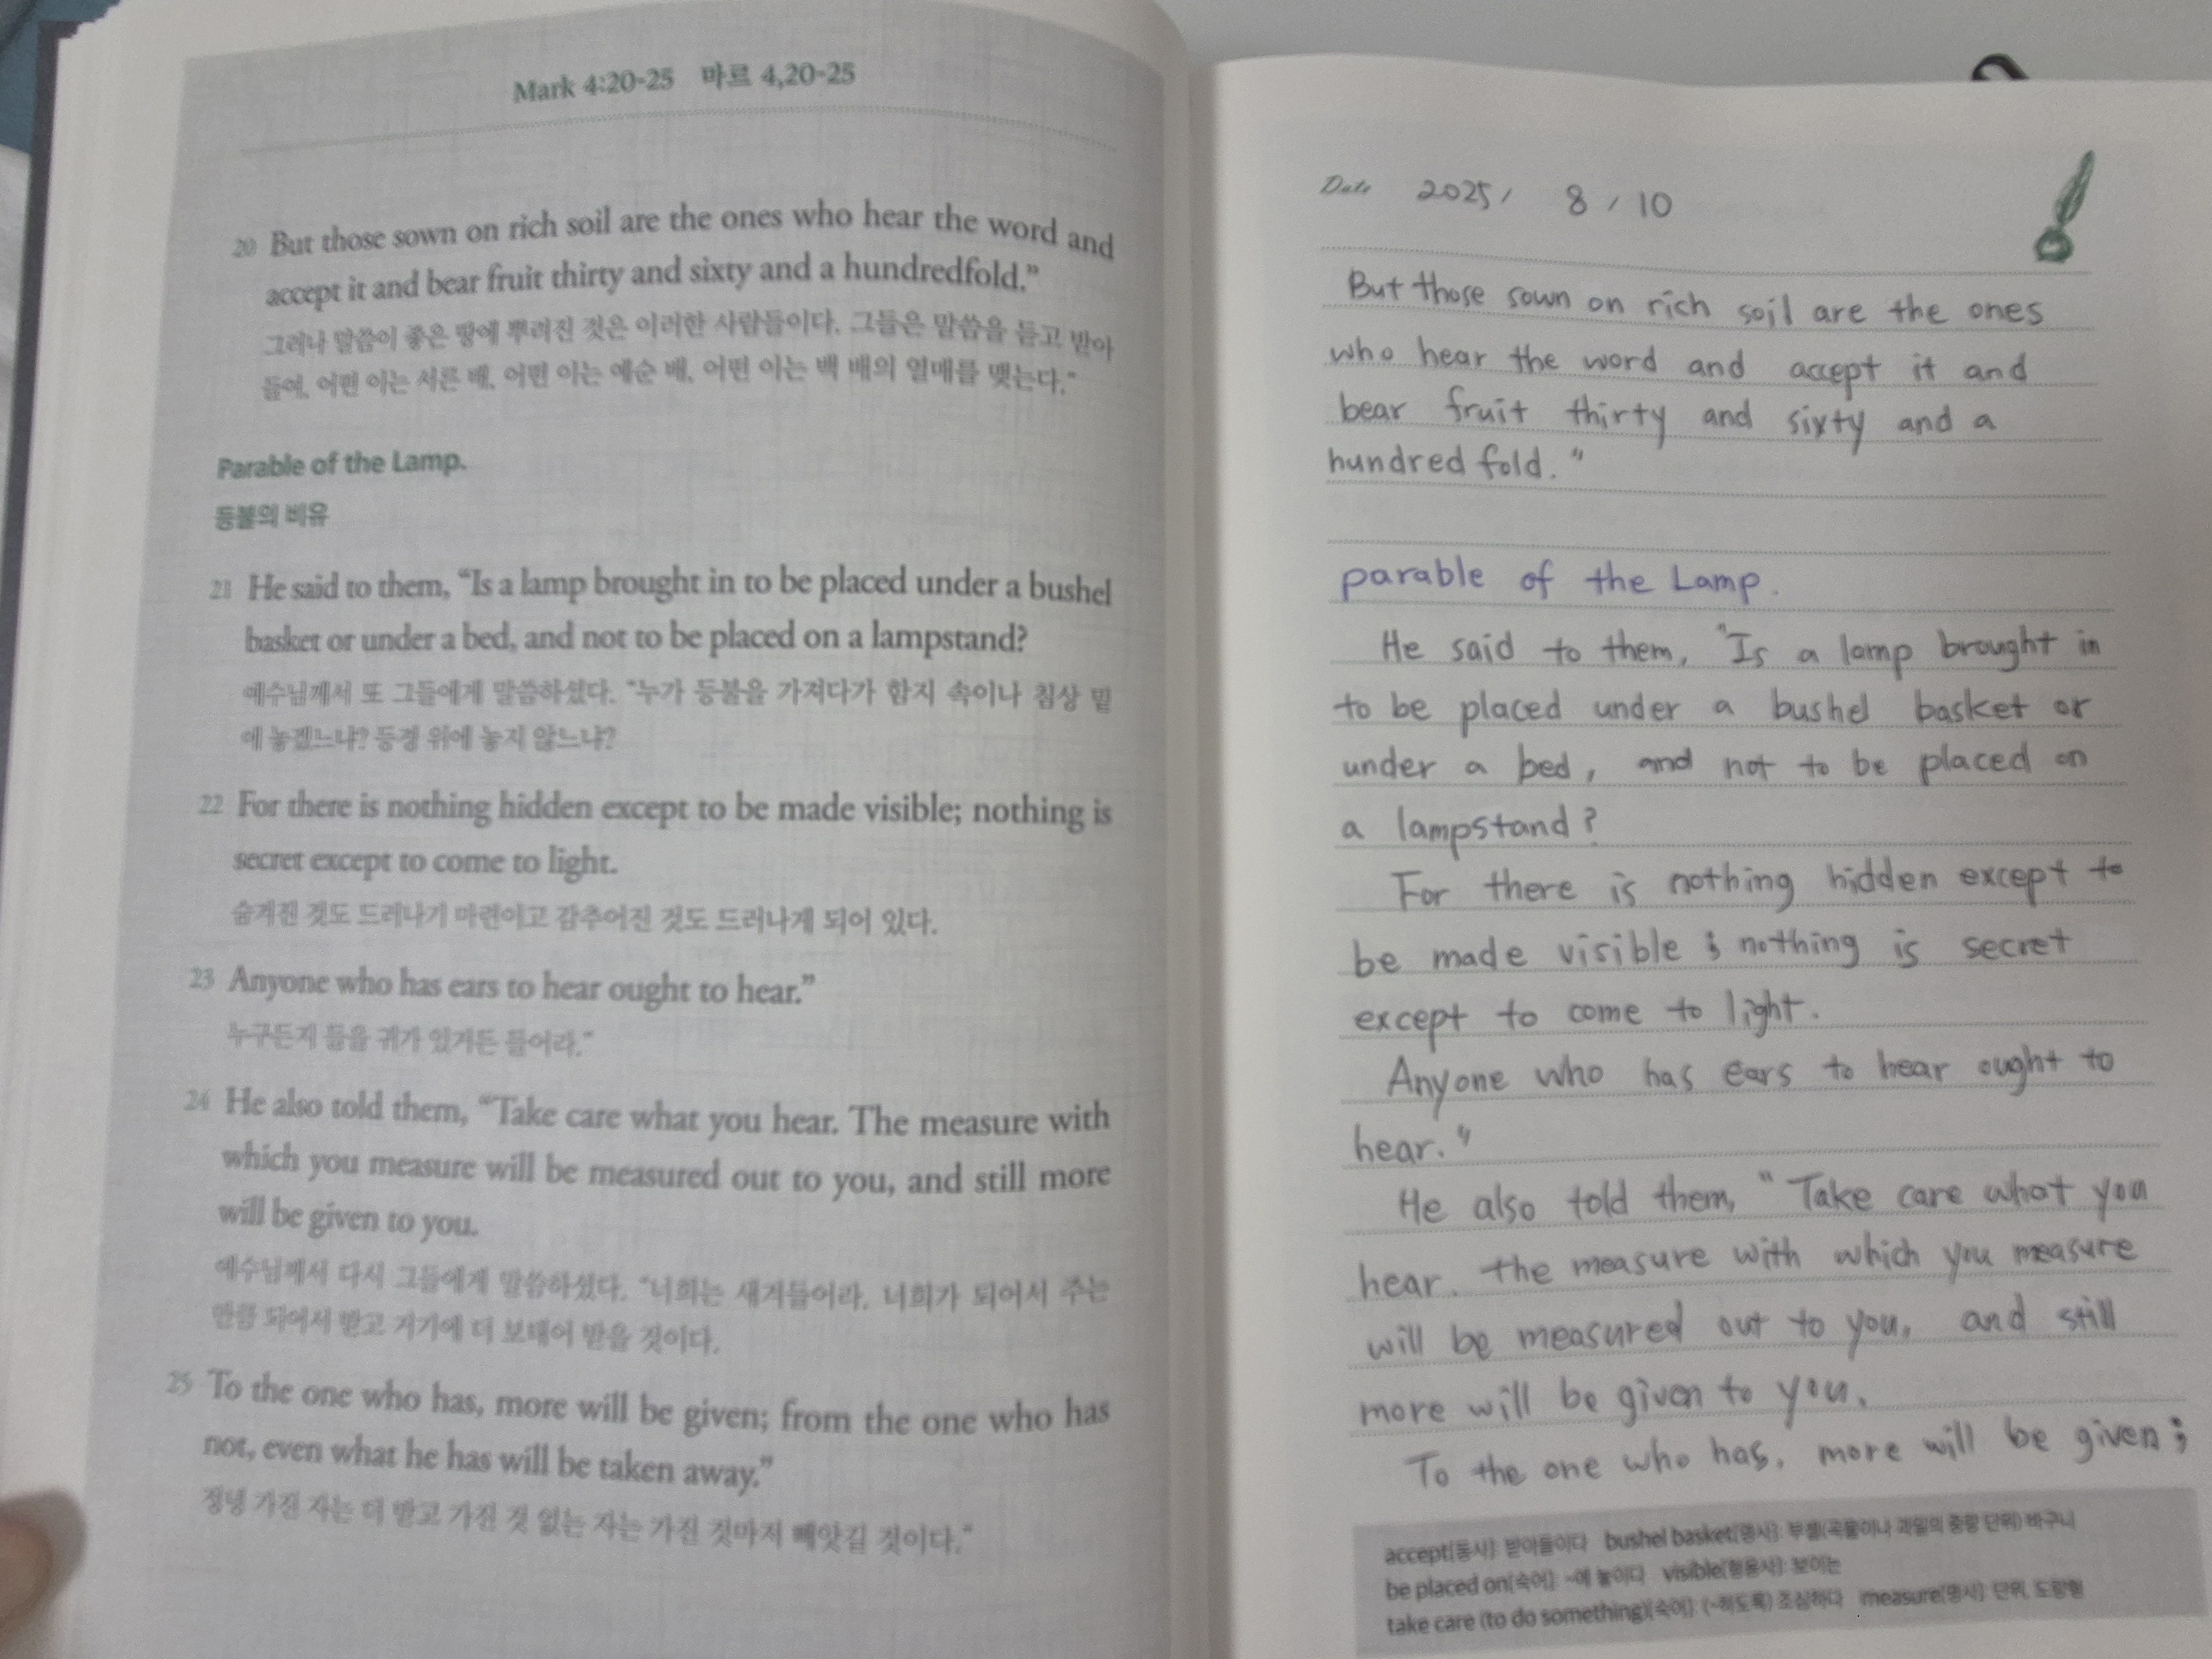 Mark 4:20-25 마르 4,20-25
20 But those sown on rich soil are the ones who hear the word and
accept it and bear fruit thirty and sixty and a hundredfold.”
그러나 말씀이 좋은 땅에 뿌려진 것은 이러한 사람들이다. 그들은 말씀을 듣고 받아
들여, 어떤 이는 서른 배, 어떤 이는 예순 배, 어떤 이는 백 배의 열매를 맺는다.”
Parable of the Lamp.
등불의 비유
21 He said to them, “Is a lamp brought in to be placed under a bushel
basket or under a bed, and not to be placed on a lampstand?
예수님께서 또 그들에게 말씀하셨다. “누가 등불을 가져다가 함지 속이나 침상 밑
에 놓겠느냐? 등경 위에 놓지 않느냐?
22 For there is nothing hidden except to be made visible; nothing is
secret except to come to light.
숨겨진 것도 드러나기 마련이고 감추어진 것도 드러나게 되어 있다.
23 Anyone who has ears to hear ought to hear.”
누구든지 들을 귀가 있거든 들어라.”
24 He also told them, “Take care what you hear. The measure with
which you measure will be measured out to you, and still more
will be given to you.
예수님께서 다시 그들에게 말씀하셨다. “너희는 새겨들어라. 너희가 되어서 주는
만큼 되어서 받고 거기에 더 보태어 받을 것이다.
25 To the one who has, more will be given; from the one who has
not, even what he has will be taken away.”
정녕 가진 자는 더 받고 가진 것 없는 자는 가진 것마저 빼앗길 것이다.”
Date 2025/ 8/10
But those sown on rich soil are the ones
who hear the word and accept it and
bear fruit thirty and sixty and a
hundred fold."
parable of the Lamp.
He said to them, "Is a lamp brought in
to be placed under a bushel basket or
under a bed, and not to be placed on
a lampstand?
For there is nothing hidden except to
be made visible ; nothing is secret
except to come to light.
Anyone who has ears to hear ought to
hear."
He also told them, "Take care what you
hear. the measure with which you measure
will be measured out to you, and still
more will be given to you.
To the one who has, more will be given;
accept[동사]: 받아들이다 bushel basket[명사]: 부셸(곡물이나 과일의 중량 단위) 바구니
be placed on[숙어]: ~에 놓이다 visible[형용사]: 보이는
take care (to do something)[숙어]: (~하도록) 조심하다 measure[명사]: 단위, 도량형